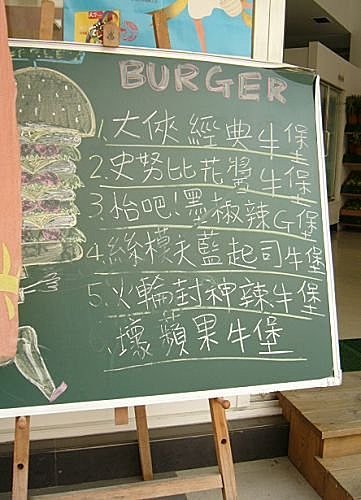 BURGER
1.大俠經典牛堡
2.史努比花醬牛堡
3.枱吧!黑椒辣G堡
4.絲襪夫藍起司牛堡
5.火輪封神辣牛堡
6.壞蘋果牛堡